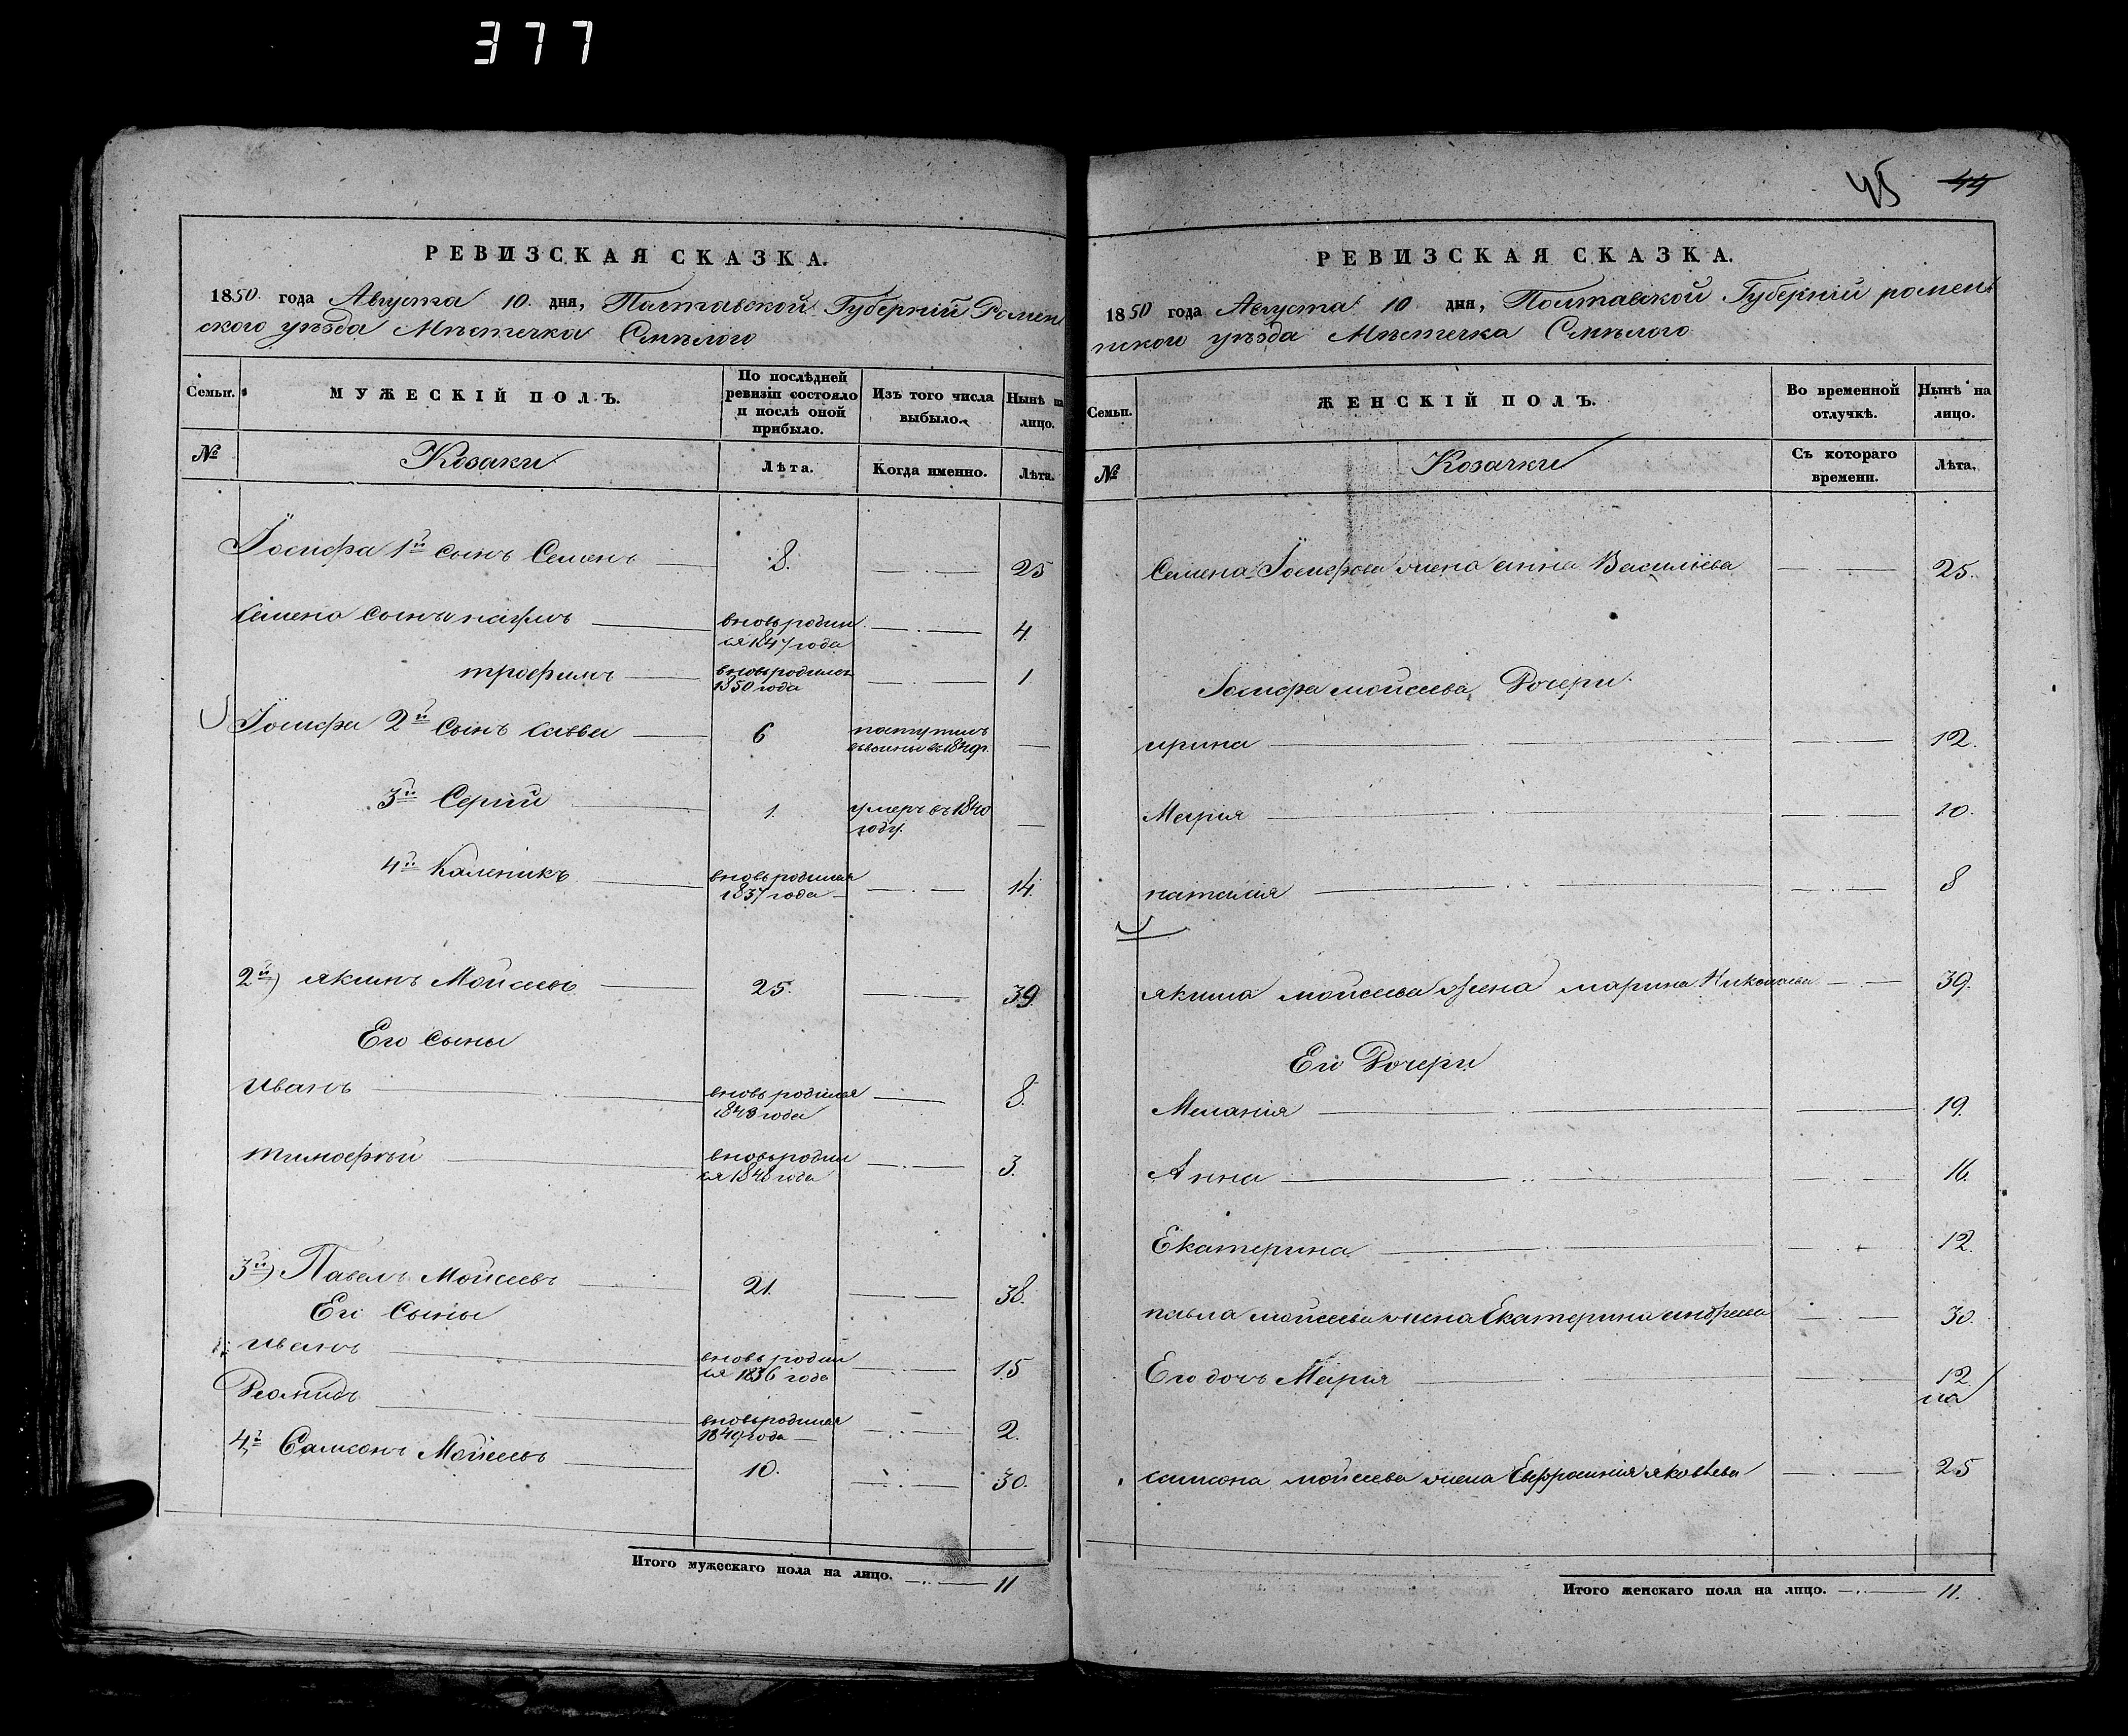 377
РЕВИЗСКАЯ СКАЗКА.
1850. года Августа 10. дня, Полтавской Губерніи Ромен
ского уѣзда Мѣстечка Смѣлого
Семьи. МУЖЕСКІЙ ПОЛЪ. По послѣдней ревизіи состояло и послѣ оной прибыло. Изъ того числа выбыло. Нынѣ на лицо.
№ Козаки Лѣта. Когда именно. Лѣта.
Іосифа 1й сынъ Семенъ 8. 25
Семена сынъ вновь родил 4.
ся 1847 года
трофимъ вновь родился 1
1850 года
Іосифа 2й сынъ Савва 6
3й Сергій 1. умеръ въ 1840
году.
4й Каленикъ вновь родился 14.
1837 года
2й) якимъ Мойсеевъ 25. 39.
Его сыны
Иванъ вновь родился 8.
года
тимофѣй вновь родил 3.
ся 1848 года
3й) Павелъ Мойсеевъ 21. 38.
Его Сыны
Иванъ вновь родил 15
ся 1836 года
вновь родился 2.
1849 года
4й Самсонъ Мойсеевъ 10. 30.
Итого мужескаго пола на лицо. 11
45 44
РЕВИЗСКАЯ СКАЗКА.
1850 года Августа 10 дня, Полтавской Губерніи ромен
ского уѣзда Мѣстечка Смѣлого
Семьи. ЖЕНСКІЙ ПОЛЪ. Во временной отлучкѣ. Нынѣ на лицо.
№ Козачки Съ котораго времени. Лѣта.
Семена Іосифова жена анна Василіева 25.
Іосифа мойсеева Дочери
ирина 12.
Марія 10.
наталія 8
якима мойсеева жена марина Николаева 39.
Его Дочери
Меланія 19.
Анна 16.
Екатерина 12.
павла мойсеева жена Екатерина андреева 30.
Его дочь Марія 12
самсона мойсеева жена Евфросинія яковлева 25
Итого женскаго пола на лицо. 11.